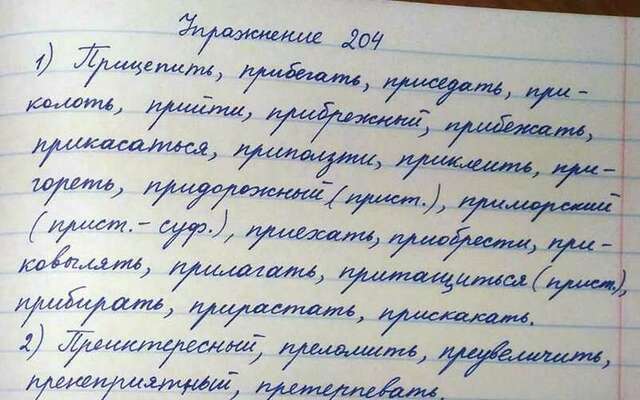 Упражнение 204
1) Прицепить, прибегать, приседать, при-
колоть, прийти, прибрежный, прибежать,
прикасаться, приползти, приклеить, при-
гореть, придорожный (прист.), приморский
(прист. - суф.), приехать, приобрести, при-
ковылять, прилагать, притащиться (прист.),
прибирать, прирастать, прискакать.
2) Преинтересный, преломить, преувеличить,
пренеприятный, претерпевать.